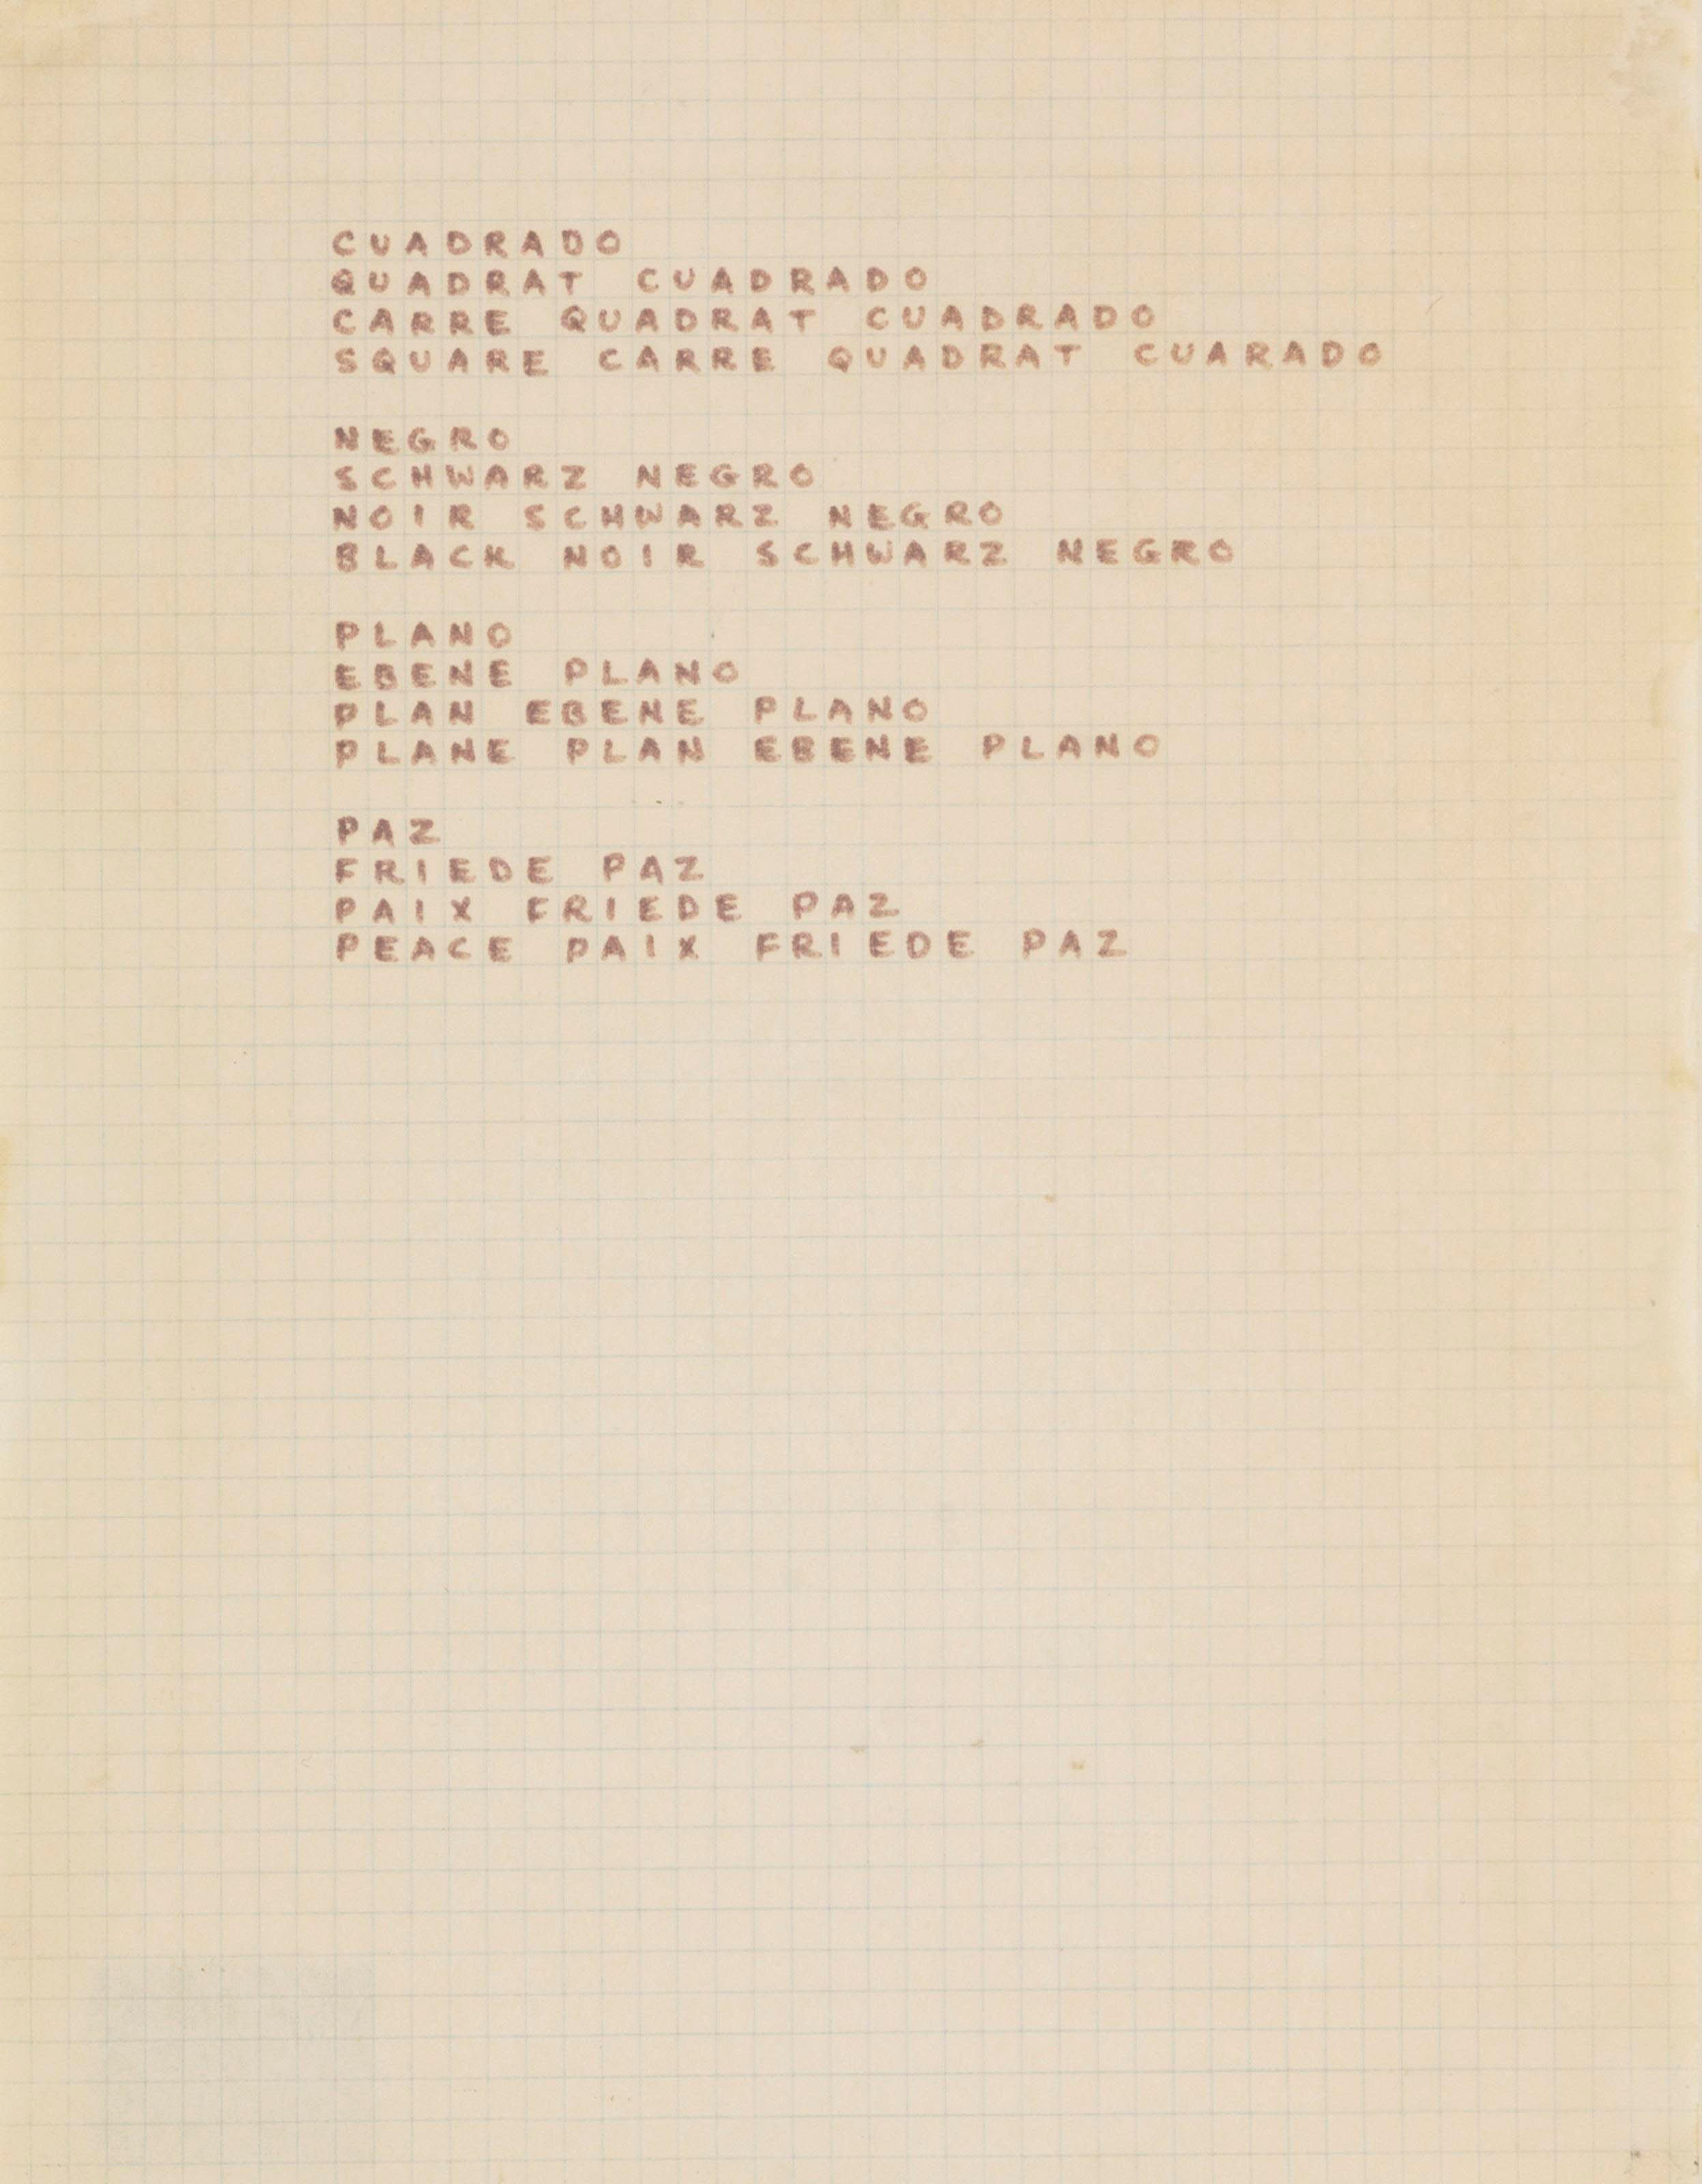 CUADRADO
QUADRAT CUADRADO
CARRE QUADRAT CUADRADO
SQUARE CARRE QUADRAT CUARADO
NEGRO
SCHWARZ NEGRO
NOIR SCHWARZ NEGRO
BLACK NOIR SCHWARZ NEGRO
PLANO
EBENE PLANO
PLAN EBENE PLANO
PLANE PLAN EBENE PLANO
PAZ
FRIEDE PAZ
PAIX FRIEDE PAZ
PEACE PAIX FRIEDE PAZ